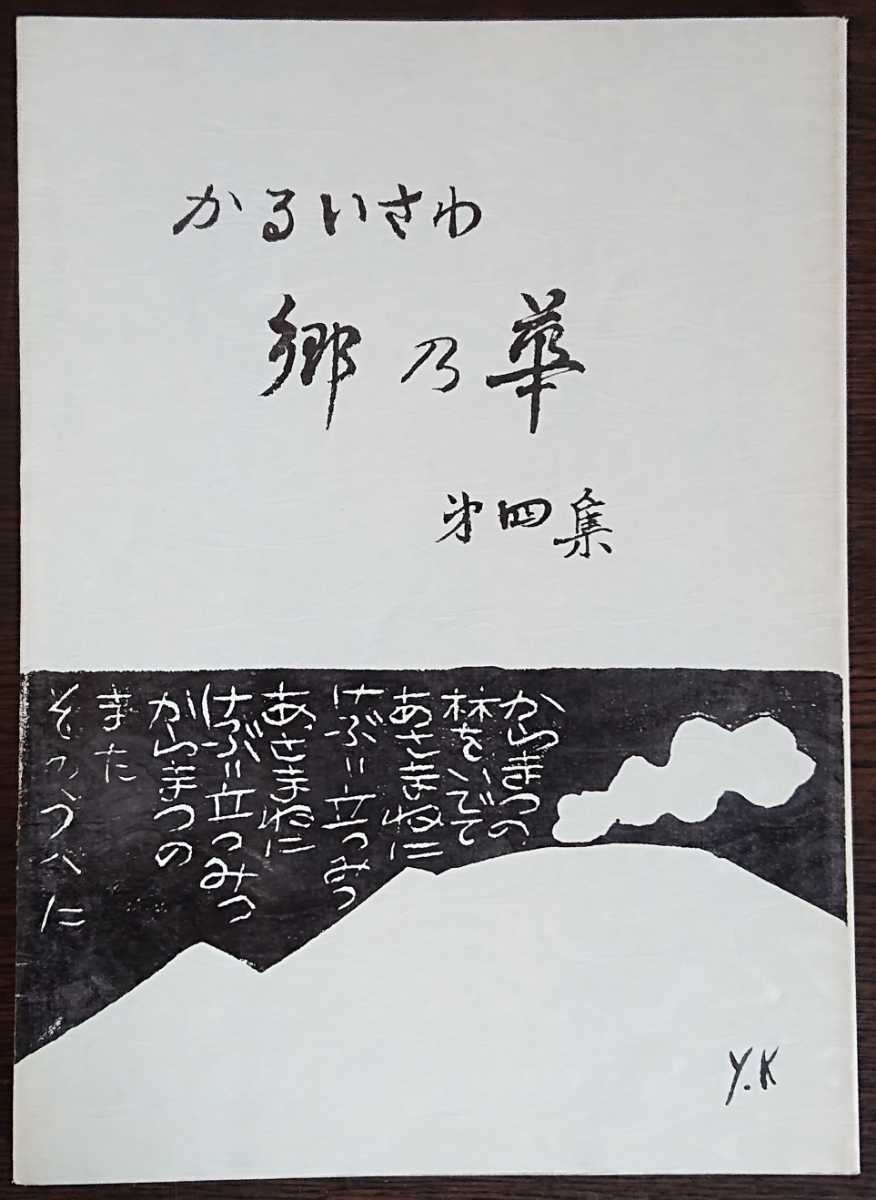 かるいさわ
郷乃華
第四集
からまつの
林をいでて
あさまねに
けぶり立つみつ
あさまねに
けぶり立つみつ
からまつの
また
そのうへに
Y.K